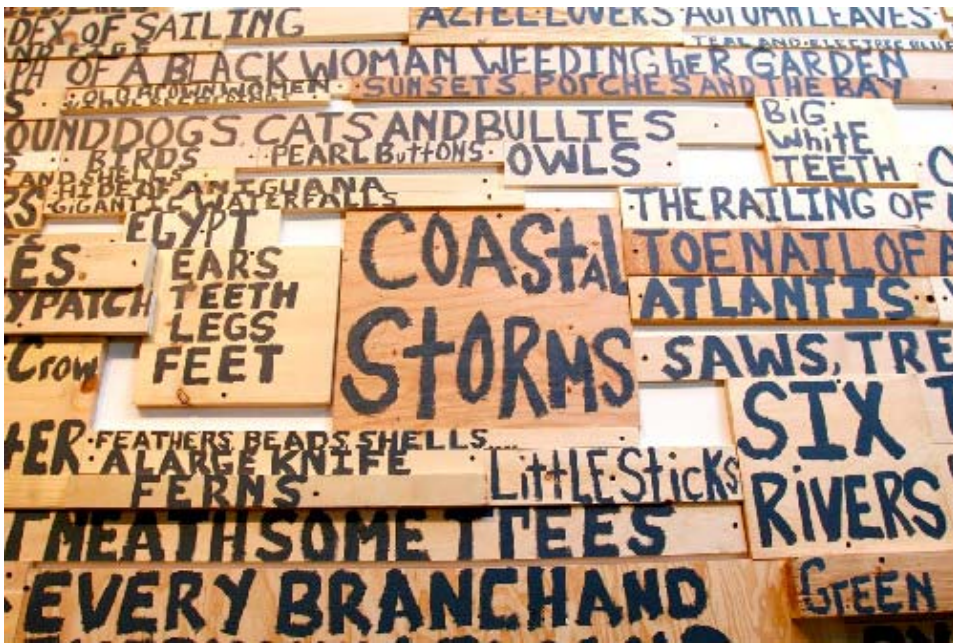 DEX OF SAILING
AZTEC LOVERS · AUTUMN LEAVES ·
TEAL AND ELECTRIC BLUE
PH OF A BLACK WOMAN WEEDING hER GARDEN
OLD BROWN WOMEN
SUNSETS PORCHES AND THE BAY
OUND DOGS, CATS AND BULLIES
BiG
White
TEETH
BIRDS
PEARL BuTTONS ·
OWLS
AND SHELLS
HIDE OF AN IGUANA
GIGANTIC WATERFALLS
THE RAILING OF
EGYPT
EARS
TEETH
LEGS
FEET
COAStAl
StORMS
TOENAIL OF A
ES.
ATLANTIS
YPATCH
SAWS, TRE
Crow
SIX
RiVERS
tER · FEATHERS BEADS SHELLS....
A LARGE KNIFE
FERNS ·
LittLE SticKs
T NEATH SOME TrEES
EVERY BRANCH AND
GrEEN